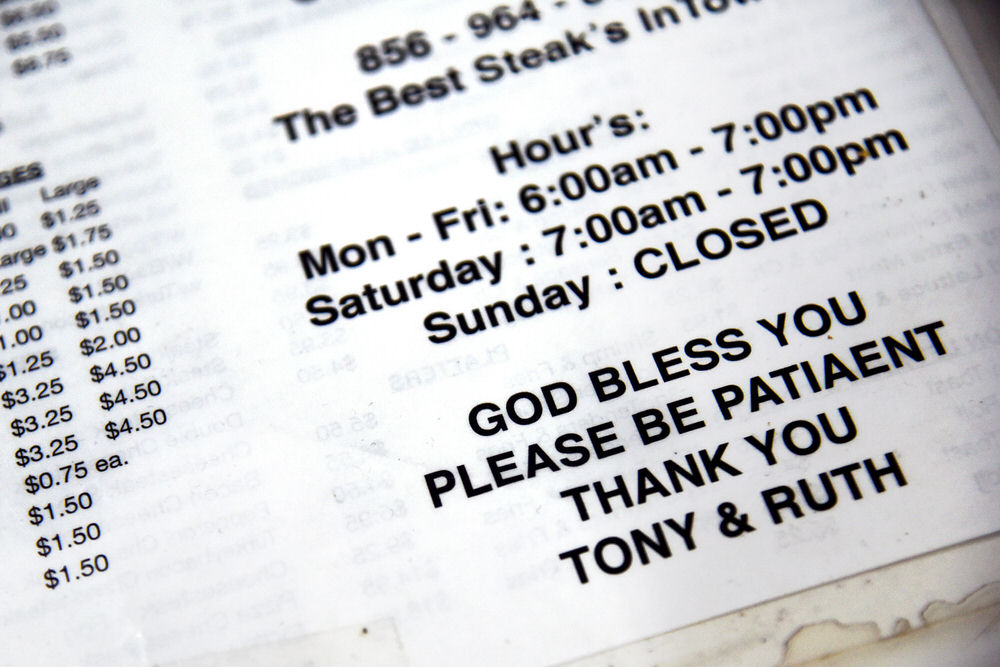 $6.75
GES
Large
$1.25
arge $1.75
25 $1.50
.00 $1.50
1.00 $1.50
$1.25 $2.00
$3.25 $4.50
$3.25 $4.50
$3.25 $4.50
$0.75 ea.
$1.50
$1.50
$1.50
856 - 964 -
The Best Steak's InTow
Hour's:
Mon - Fri: 6:00am - 7:00pm
Saturday : 7:00am - 7:00pm
Sunday : CLOSED
GOD BLESS YOU
PLEASE BE PATIAENT
THANK YOU
TONY & RUTH